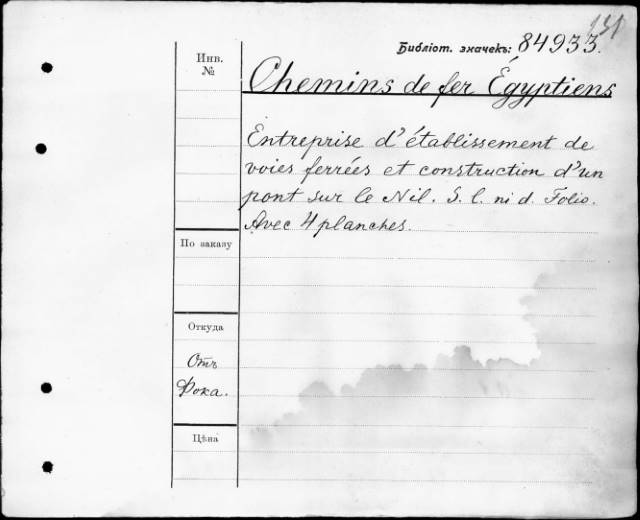 131
Библіот. значекъ: 84933.
Инв.
№
Chemins de fer Égyptiens
Entreprise d'établissement de
voies ferrées et construction d'un
pont sur le Nil. S. l. ni d. Folio.
Avec 4 planches.
По заказу
Откуда
Отъ
Фока.
Цѣна